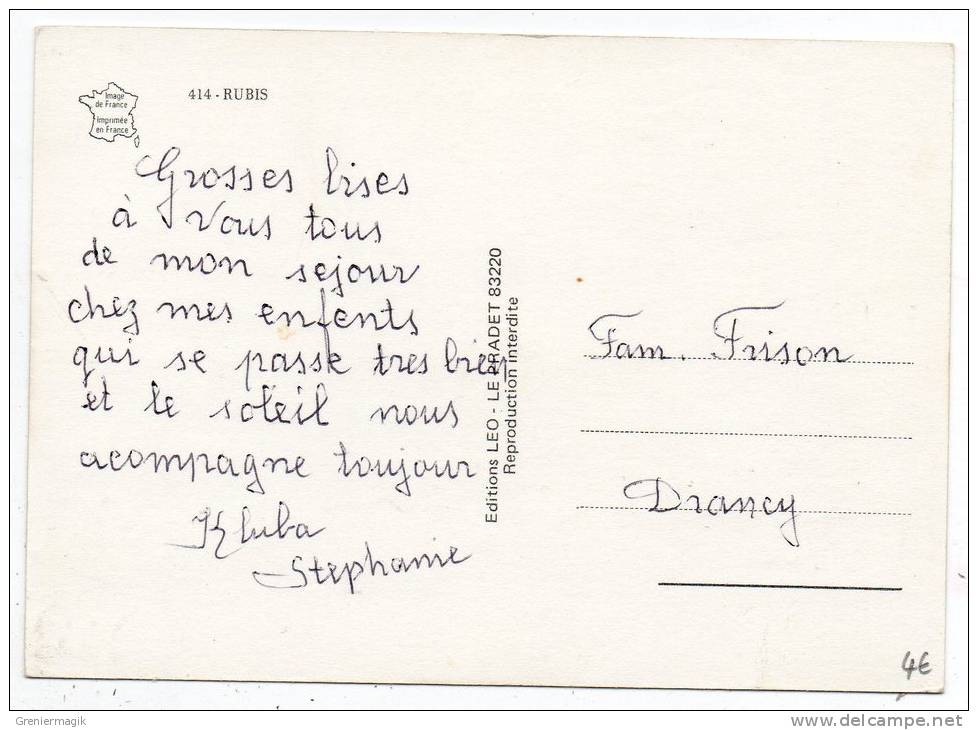 Image
de France
Imprimée
en France
414 - RUBIS
Grosses bises
à vous tous
de mon sejour
chez mes enfents
qui se passe tres bien
et le soleil nous
acompagne toujour
Kluba
Stephanie
Editions LEO - LE PRADET 83220
Reproduction interdite
Fam. Frison
Drancy
4€
Greniermagik
www.delcampe.net